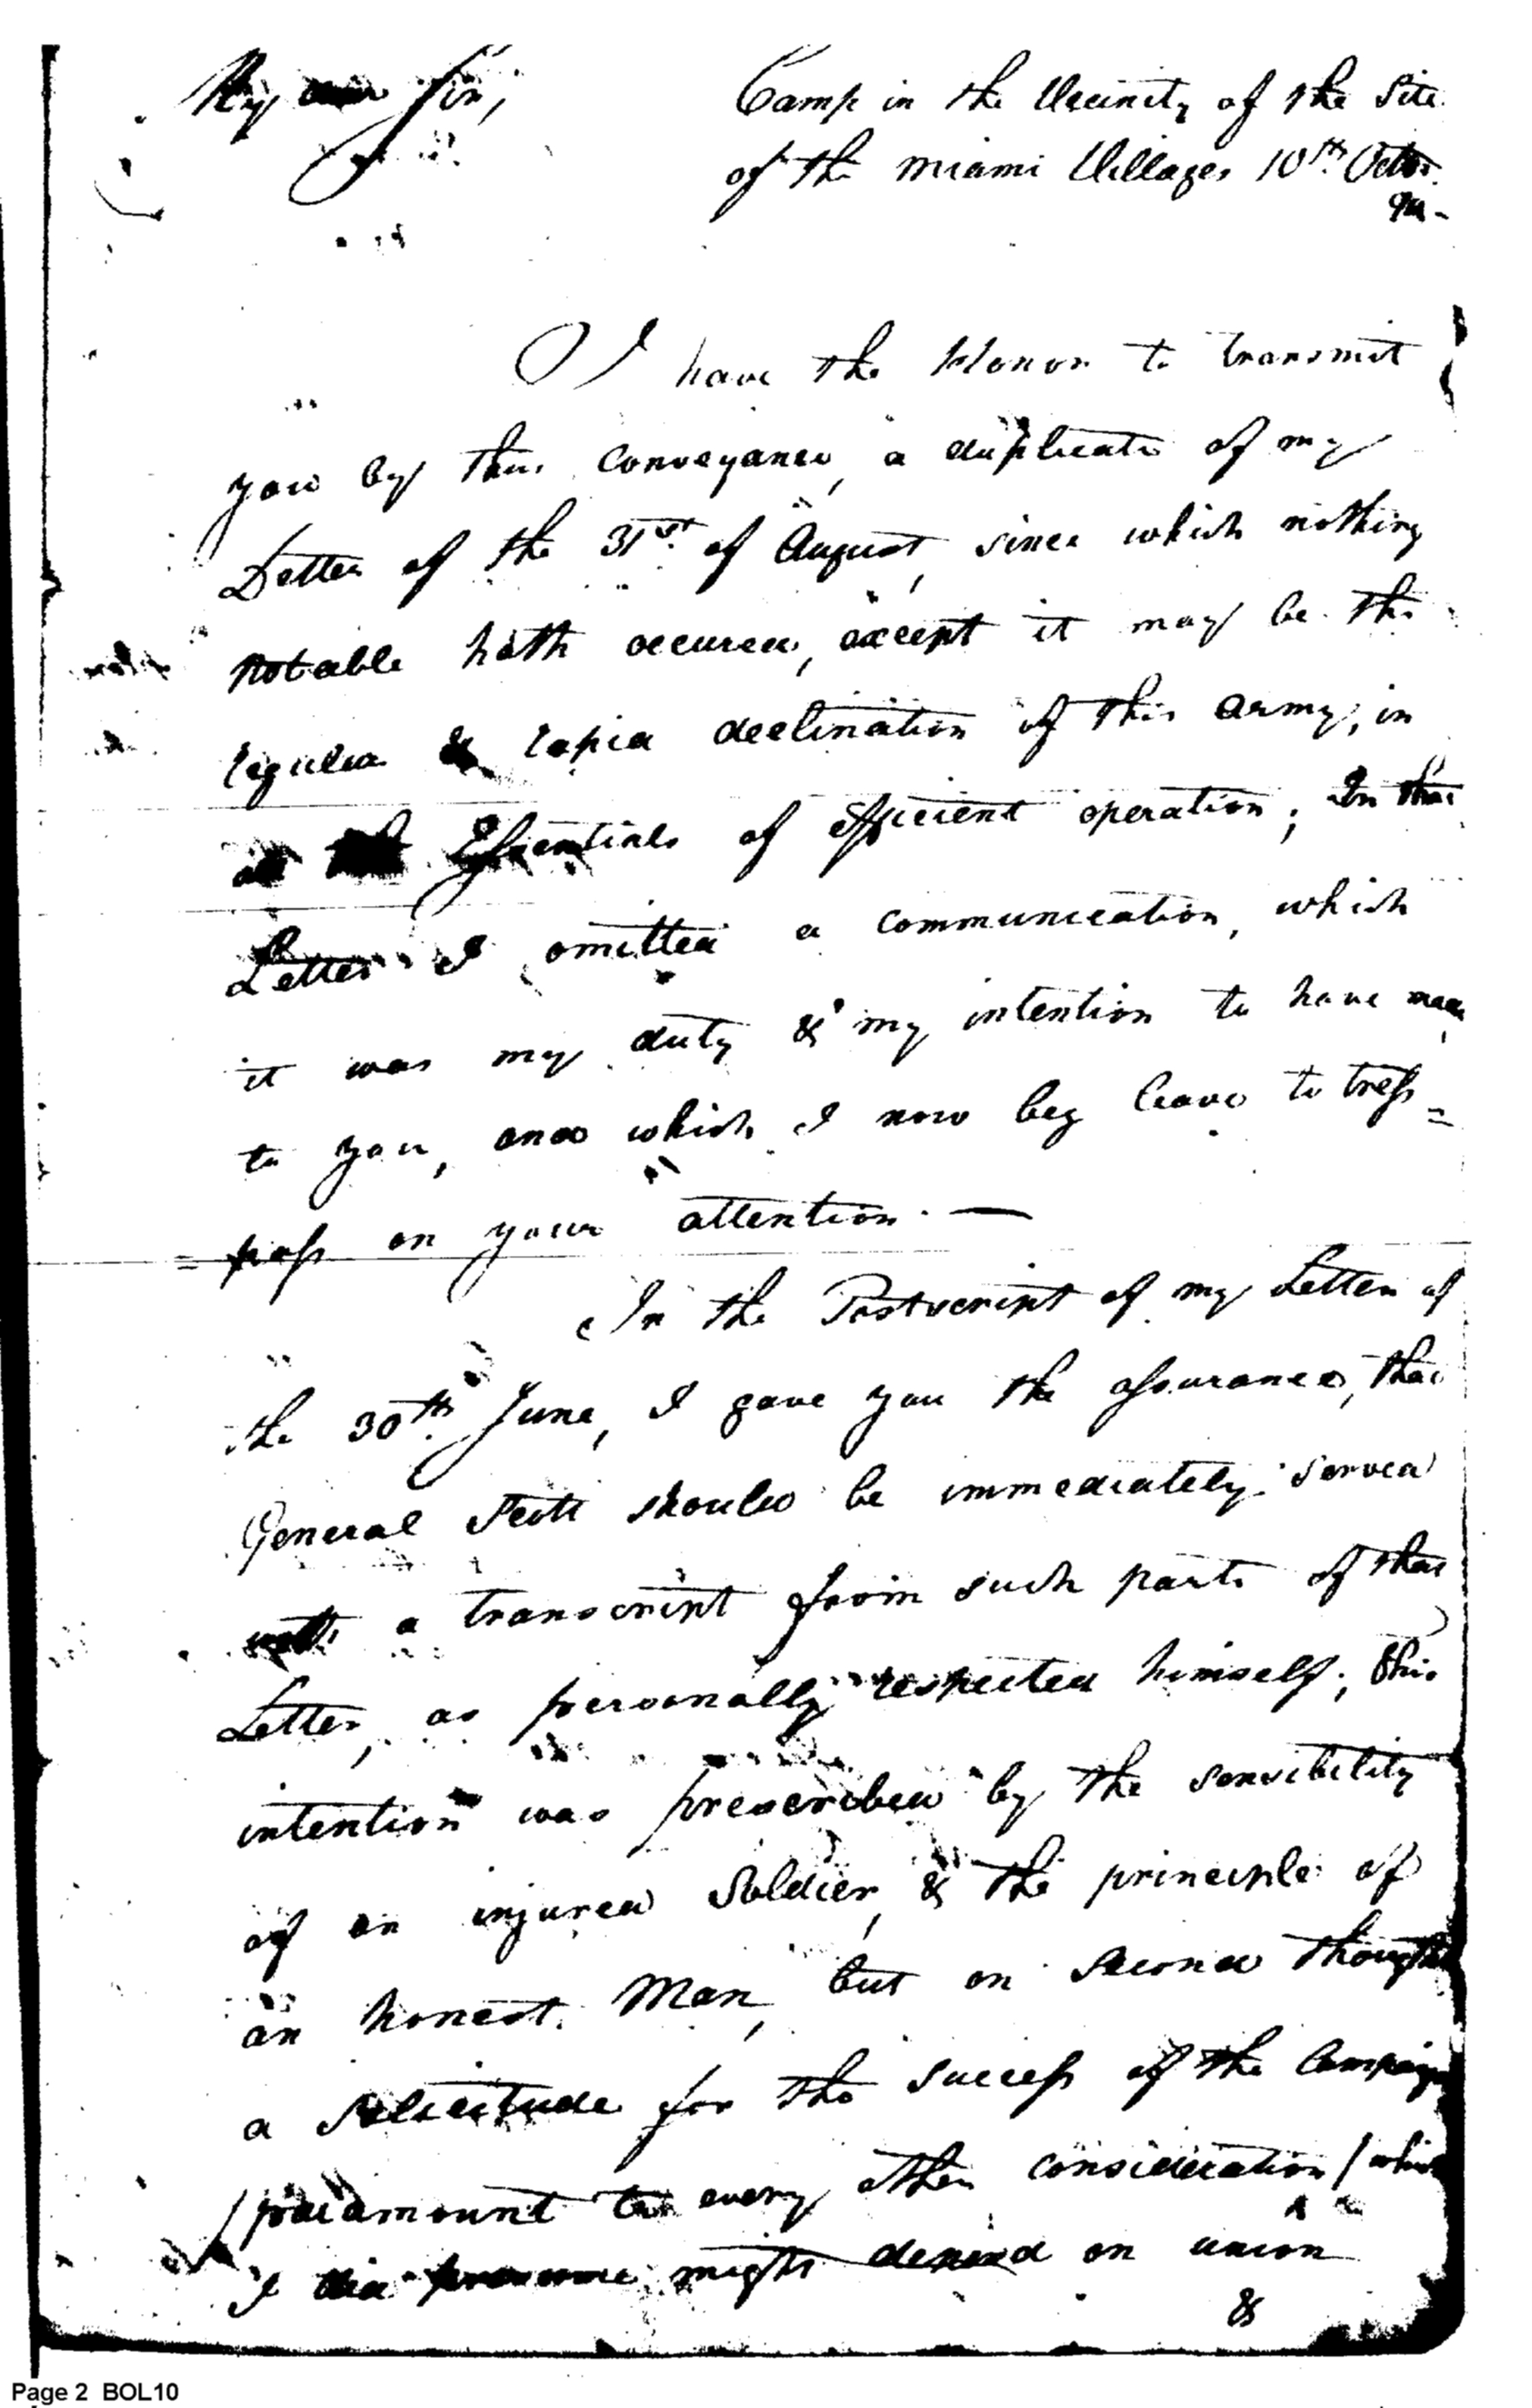 My dear Sir,
Camp in the Vicinity of the Site
of the Miami Villages 10th. Octor.
94-
I have the Honor to transmit
you by this conveyance, a duplicate of my
Letter of the 31st. of August, since which nothing
Notable hath occured, except it may be the
regular & rapid declination of this Army, in
all the Essentials of efficient operation; In that
Letter I omitted a communication, which
it was my duty & my intention to have made
to you, and which I now beg leave to tress=
=pass on your attention.—
In the Postscript of my Letter of
the 30th. June, I gave you the assurance, that
General Scott should be immediately served
with a transcript from such parts of that
Letter, as personally respected himself; this
intention was prescribed by the sensibility
of an injured Soldier, & the principle of
an honest Man, but on second thought
a solicitude for the success of the Campaign
/paramount to every other consideration/ which
I did presume might depend on union
&
Page 2 BOL10